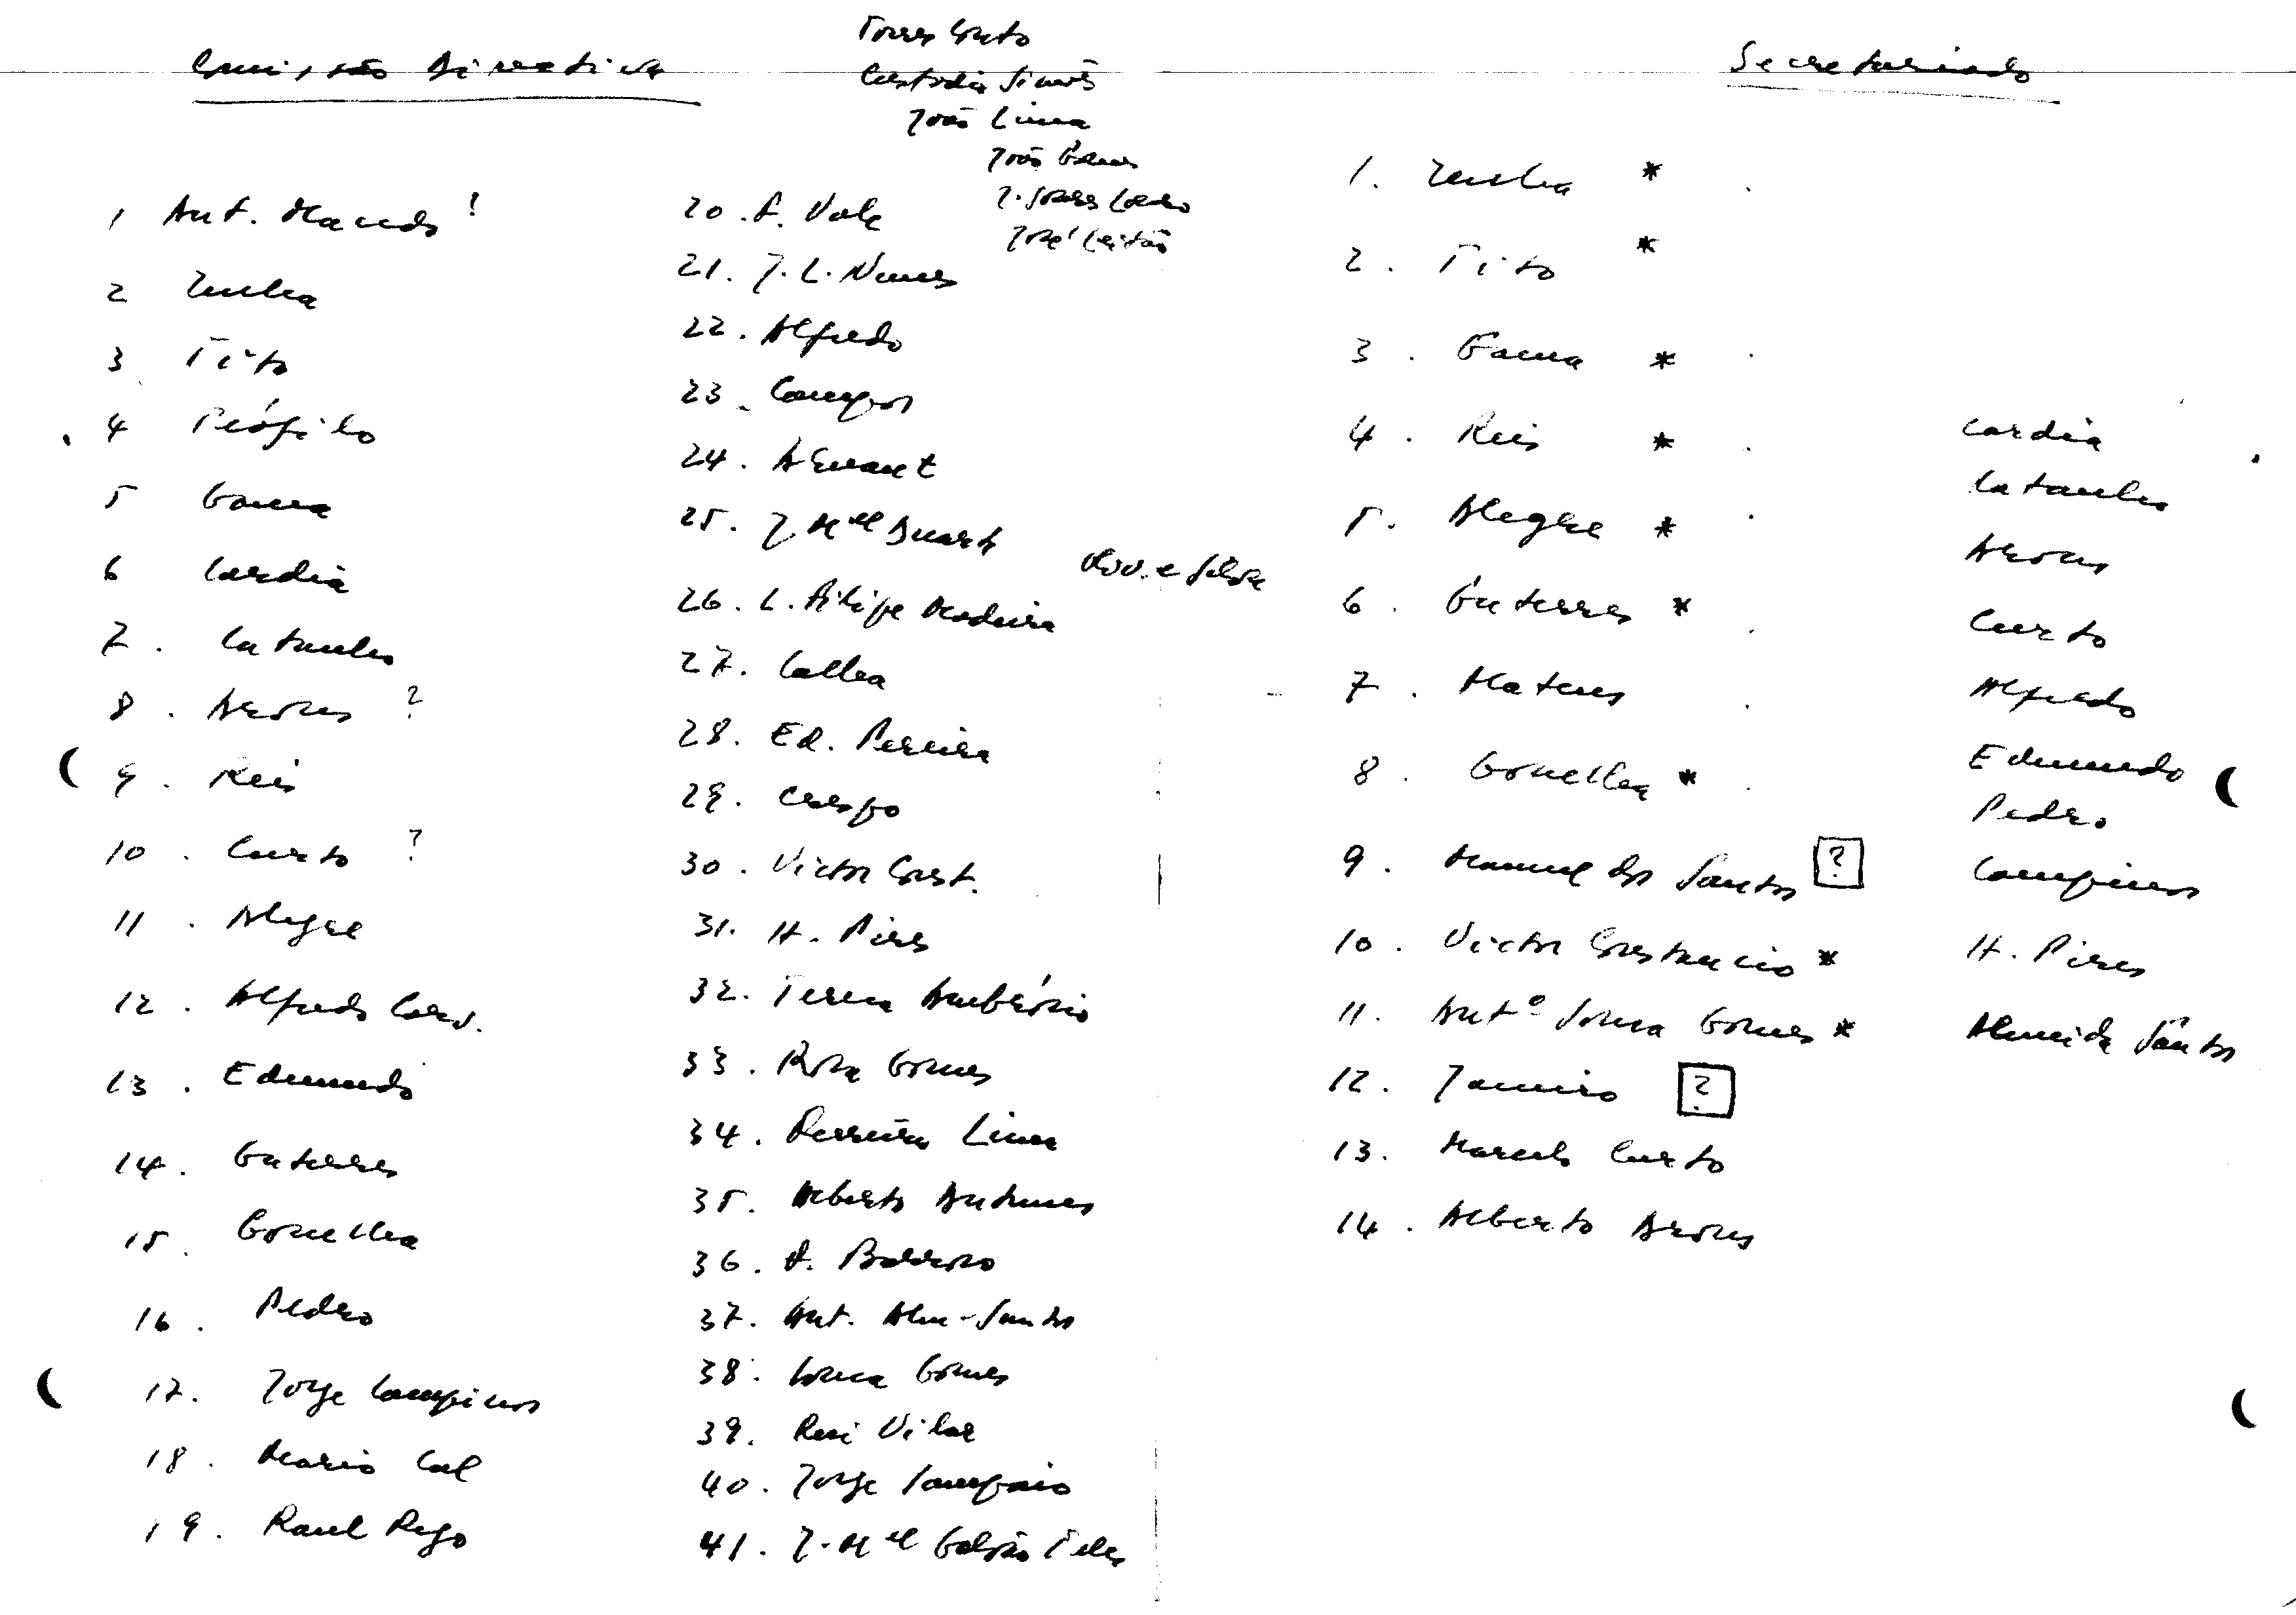 Comissão Directiva
1 Ant. Macedo !
2 Zenha
3 Tito
4 Teófilo
5 Gama
6 Cardia
7. Catanho
8. Arons ?
9. Reis
10. Curto ?
11. Alegre
12. Alfredo Carv.
13. Edmundo
14. Guterres
15. Gonelha
16. Pedro
17. Jorge Campinos
18. Mario Cal
19. Raul Rego
Torres Couto
Custodio Simões
João Lima
João Gomes
José Leitão
20. F. Vale
21. J. L. Nunes
22. Alfredo
23. Campos
24. Arnaut
25. J. Mel Duarte
26. L. Filipe Madeira
27. Callea
28. Ed. Pereira
29. Crespo
30. Victor Const.
31. H. Pires
32. Teresa Ambrósio
33. Rosa Gomes
34. Ferreira Lima
35. Alberto Antunes
36. A. Barroso
37. Ant. Alm-Santos
38. Sousa Gomes
39. Rui Vilar
40. Jorge Sampaio
41. J. Mel Galvão Teles
Secretariado
1. Zenha *
2. Tito *
3. Gama *
4. Reis *
5. Alegre *
6. Guterres *
7. Mateus
8. Gonelha *
9. Manuel dos Santos ?
10. Victor Constancio *
11. Antº Sousa Gomes *
12. Janeiro ?
13. Marcelo Curto
14. Alberto Arons
Cardia
Catanho
Arons
Curto
Alfredo
Edmundo
Pedro
Campinos
H. Pires
Almeida Santos